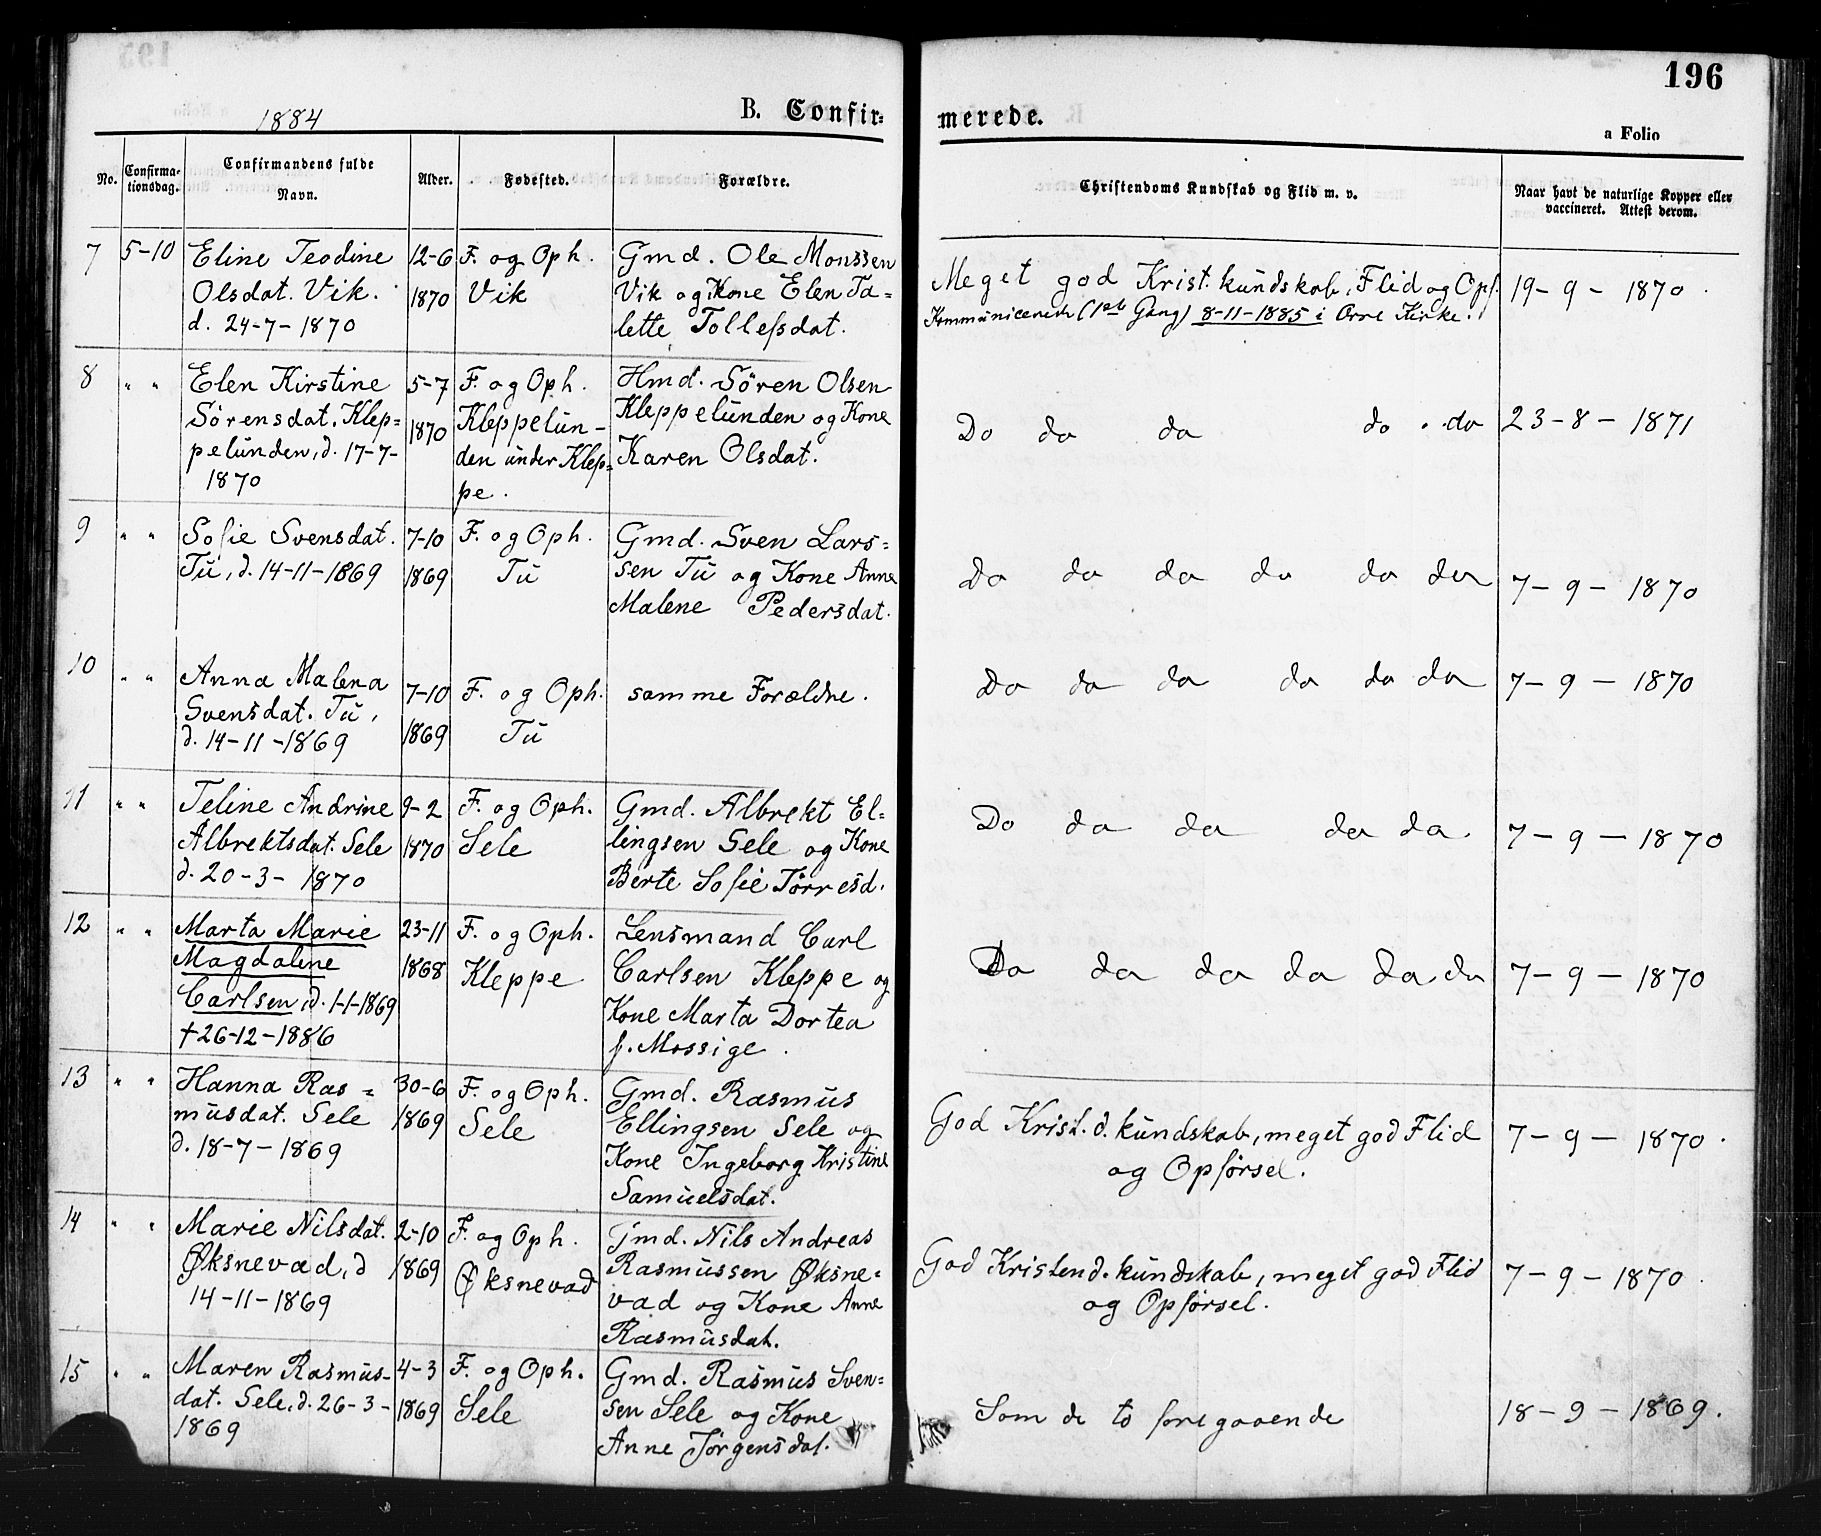 196
1884
B. Confir=
merede.
a Folio
No.
Confirma-
tionsdag.
Confirmandens fulde
Navn.
Alder.
Fødested.
Forældre.
Christendoms Kundskab og Flid m. v.
Naar havt de naturlige Kopper eller
vaccineret. Attest derom.
7
5-10
Eline Teodine
Olsdat. Vik.
d. 24-7-1870
12-6
1870
F. og Oph.
Vik
Gmd. Ole Monssen
Vik og Kone Elen Ta=
lette Tollefsdat.
Meget god Krist. kundskab, Flid og Opf.
Kommunicerede (1ste Gang) 8-11-1885 i Orre Kirke.
19-9-1870.
8
" "
Elen Kirstine
Sörensdat. Klep=
pelunden, d. 17-7-
1870
5-7
1870
F. og Oph.
Kleppelun-
den under Klep=
pe.
Hmd. Sören Olsen
Kleppelunden og Kone
Karen Olsdat.
Do do do do do
23-8-1871
9
" "
Sofie Svensdat.
Tu, d. 14-11-1869
7-10
1869
F. og Oph.
Tu
Gmd. Sven Lars=
sen Tu og Kone Anne
Malene Pedersdat.
Do do do do do do
7-9-1870
10
" "
Anna Malena
Svensdat. Tu,
d. 14-11-1869
7-10
1869
F. og Oph.
Tu
samme Forældre.
Do do do do do do
7-9-1870
11
" "
Teline Andrine
Albrektsdat. Sele
d. 20-3-1870
9-2
1870
F. og Oph.
Sele
Gmd. Albrekt El=
lingsen Sele og Kone
Berte Sofie Törresd.
Do do do do do
7-9-1870
12
" "
Marta Marie
Magdalene
Carlsen, d. 1-1-1869
†26-12-1886
23-11
1868
F. og Oph.
Kleppe
Lensmand Carl
Carlsen Kleppe og
Kone Marta Dortea
f. Mossige.
Do do do do do do
7-9-1870
13
" "
Hanna Ras=
musdat. Sele
d. 18-7-1869
30-6
1869
F. og Oph.
Sele
Gmd. Rasmus
Ellingsen Sele og
Kone Ingeborg Kristine
Samuelsdat.
God Krist.d. kundskab, meget god Flid
og Opförsel.
7-9-1870.
14
" "
Marie Nilsdat.
Øksnevad, d
14-11-1869
2-10
1869
F. og Oph.
Øksnevad
Gmd. Nils Andreas
Rasmussen Øksne=
vad og Kone Anne
Rasmusdat.
God Kristend. kundskab, meget god Flid
og Opförsel.
7-9-1870.
15
" "
Maren Rasmus-
dat. Sele, d. 26-3-
1869
4-3
1869
F. og Oph.
Sele
Gmd. Rasmus Sven=
sen Sele og Kone
Anne Jörgensdat.
Som de to foregaaende
18-9-1869.